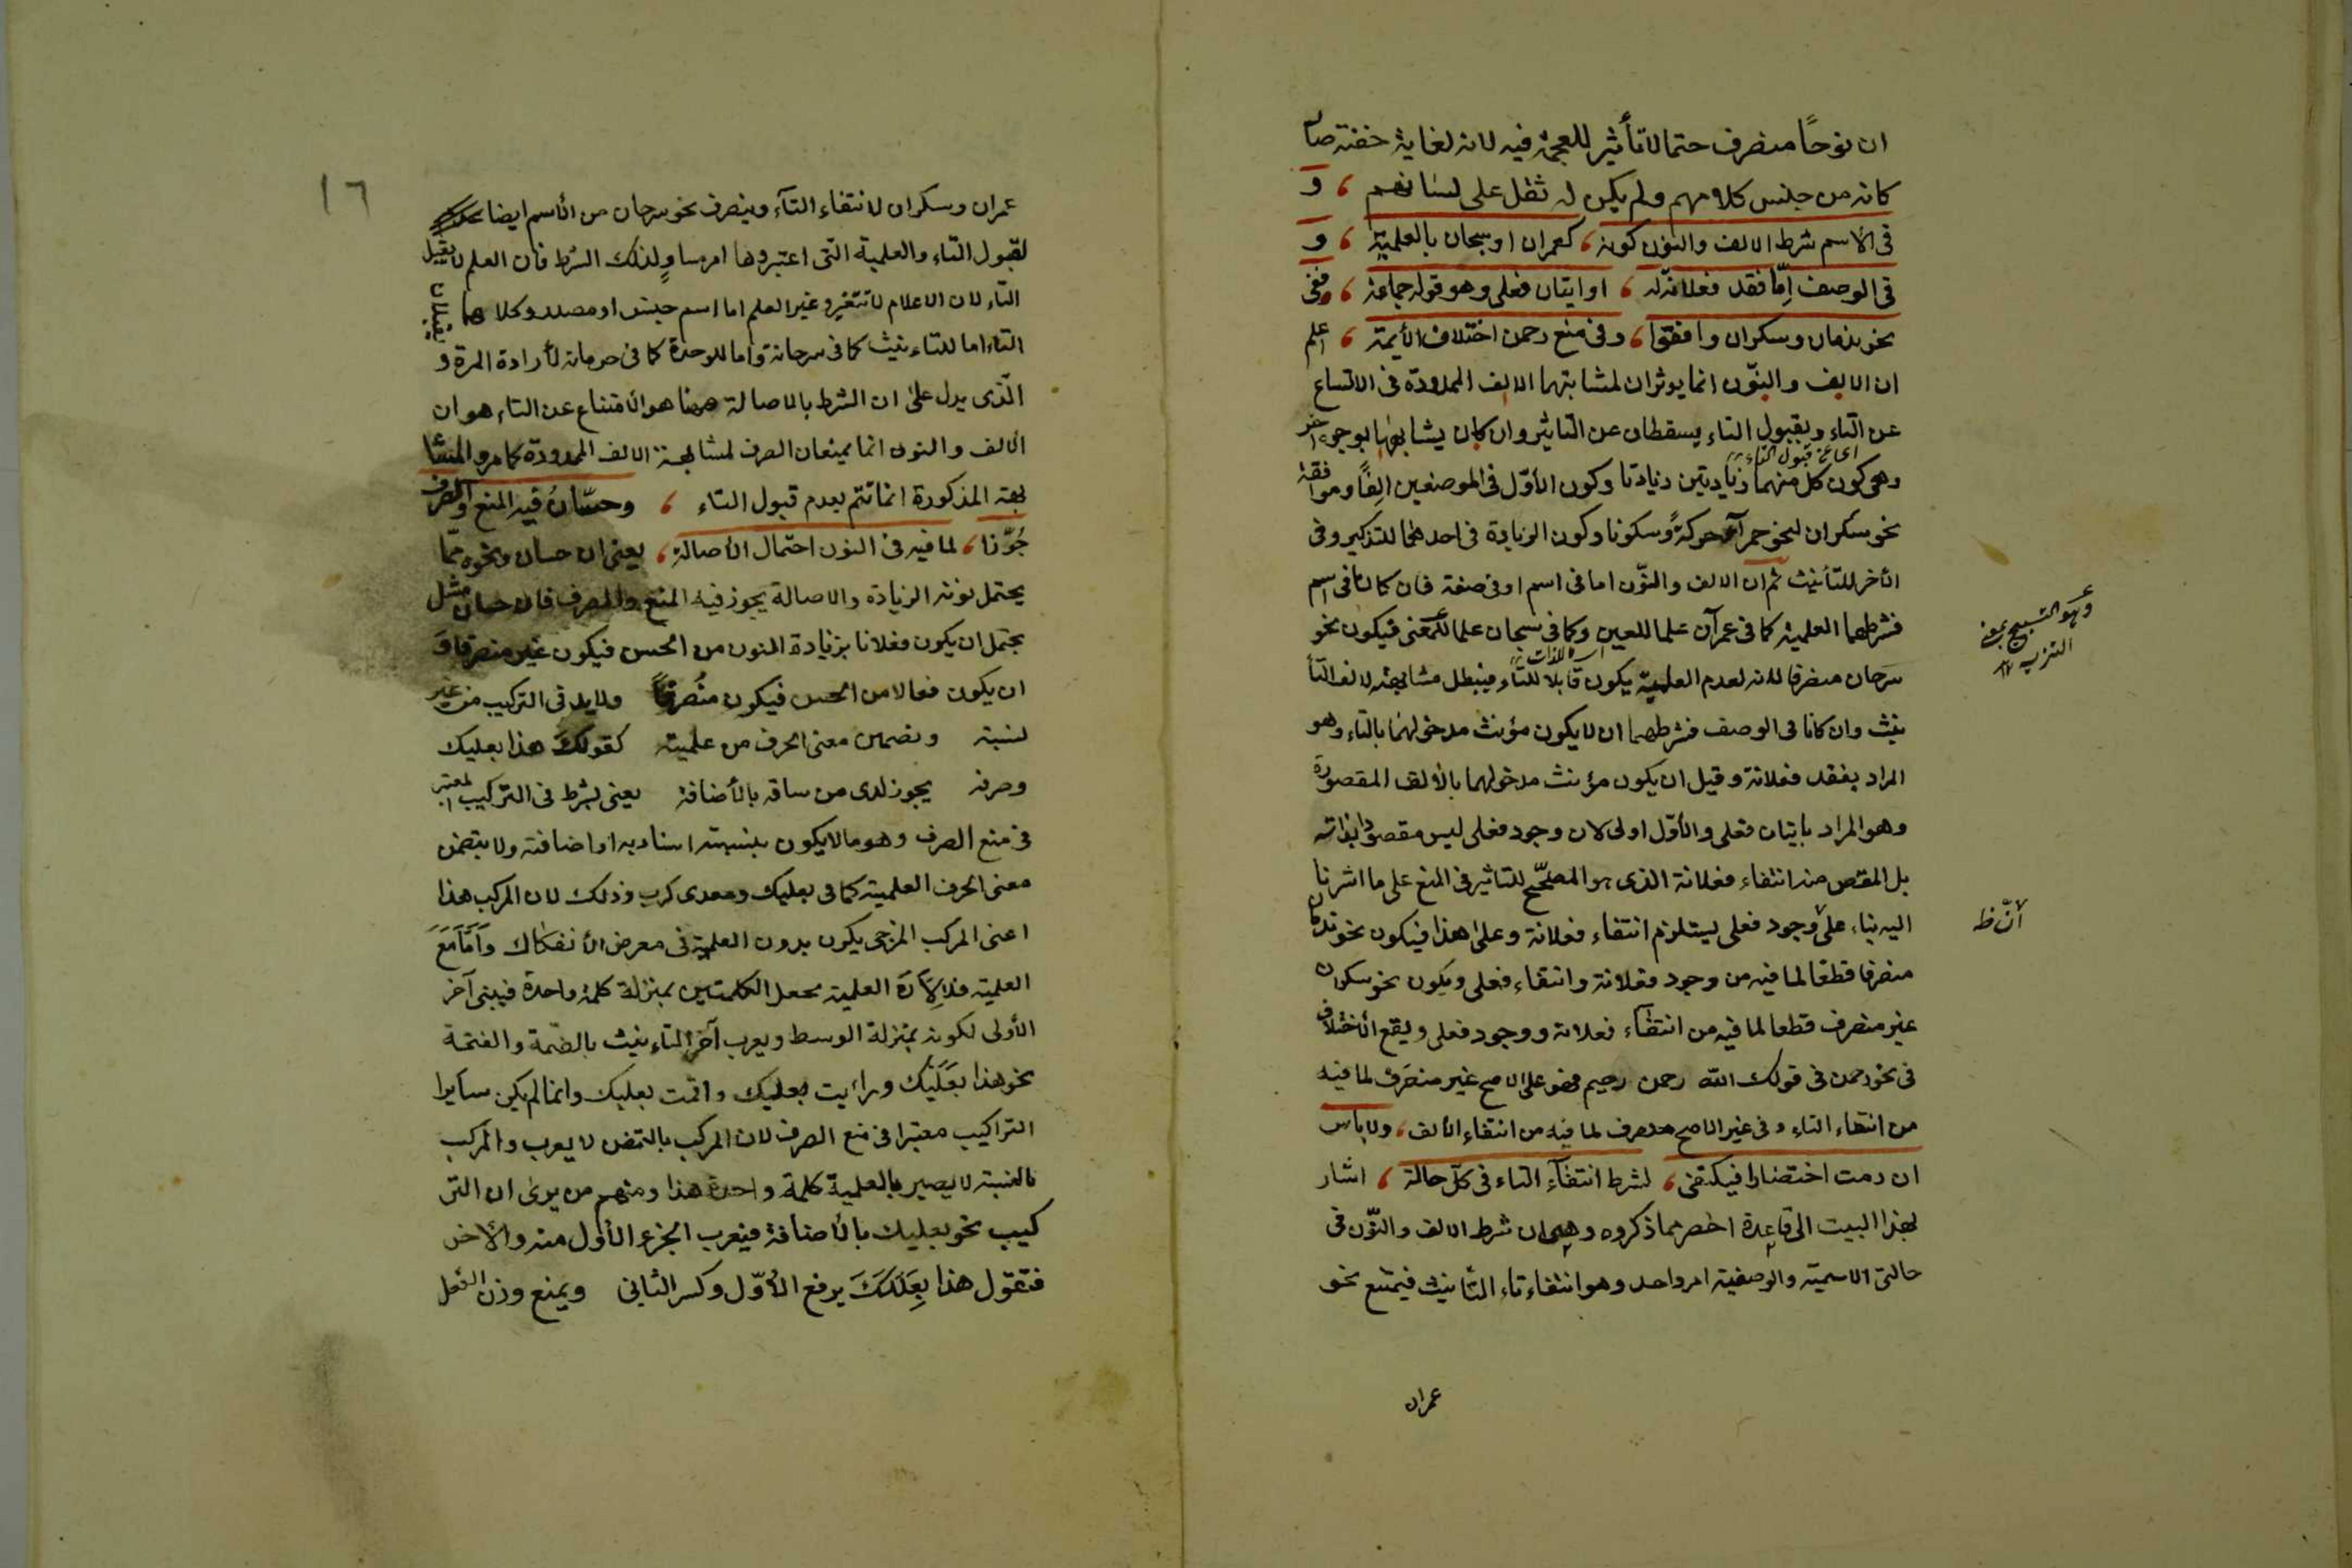 ان نوحًا منصرف حتما لا تأثير للعجمة فيه لانه لغاية خفته صار
كانه من جنس كلامهم ولم يكن له ثقل على لسانهم ، و
فى الاسم شرط الالف والنون كونه ، كعمران او سبحان بالعلمية ، و
فى الوصف امّا فقد فعلانة له ، او اتيان فعلى وهو قوله جماعة ، ففى
نحو ندمان وسكران وافقوا ، وفى منع رحمن اختلاف الأيمة ، اعلم
ان الالف والنّون انما يوثران لمشابتهما الالف الممدودة فى الامتناع
عن التاء وبقبول التاء يسقطان عن التاثير وان كان يشابهها بوجوه اخر
اى عن قبول التاء
وهى كون كل منهما زيادتين زيادتا وكون الأوّل فى الموضعين الِفًا وموافقة
نحو سكران لنحو حمرآء حركةً وسكونا وكون الزيادة فى احدهما للتذكير وفى
الأخر للتأنيث ثم ان الالف والنّون اما فى اسم او فى صفة فان كانا فى اسم
فشرطهما العلمية كما فى عمرآن علما للعين وكما فى سبحان علما للمعنى فيكون نحو
وهو التسبيح بمعنى
التنزيه
سرحان منصرفا لانه لعدم العلمية يكون قابلا للتاء فيبطل مشابهته لالف التأ
نيث وان كانا فى الوصف فشرطهما ان لا يكون مؤنث مدخولهما بالتاء وهو
المراد بفقد فعلانة وقيل ان يكون مؤنث مدخولهما بالألف المقصورة
وهو المراد باتيان فعلى والأوّل اولى لان وجود فعلى ليس مقصودا بذاته
بل المقص منه انتفاء فعلانة الذى هو المصحّح للتاثير فى المنع على ما اشرنا
اليه بناء على وجود فعلى يستلزم انتفاء فعلانة وعلى هذا فيكون نحو ندمان
أنّ ظ
منصرفا قطعا لما فيه من وجود فعلانة وانتفاء فعلى ويكون نحو سكران
غير منصرف قطعا لما فيه من انتفآء فعلانة ووجود فعلى ويقع الاختلاف
فى نحو رحمن فى قولك الله رحمن رحيم فهو على الاصح غير منصرف لما فيه
من انتفاء التاء وفى غير الاصح منصرف لما فيه من انتفاء الألف ، ولا باس
ان رمت اختصارا فيكتفى ، لشرط انتفآء التاء فى كلّ حالة ، اشار
بهذا البيت الى قاعدة اخصر مما ذكروه وهى ان شرط الالف والنّون فى
حالتى الاسمية والوصفية امر واحد وهو انتفاء تاء التأنيث فيمتنع نحو
عمران
١٦
عمران وسكران لانتفاء التآء وينصرف نحو سرحان من الأسم ايضا
لقبول التاء والعلمية التى اعتبروها امر مساوٍ لذلك الشرط فان العلم لا يقبل
التاء لان الاعلام لا تتغير وغير العلم اما اسم جنس او مصدر وكلاهما يقبلان
التاء اما للتاءنيث كما فى سرحانة واما للوحدة كما فى حرمانة لأرادة المرة و
الّذى يدل على ان الشرط بالاصالة ههنا هو الأمتناع عن التاء هو ان
الألف والنون انما يمنعان الصرف لمشابهة الالف الممدودة كما مر والمشا
بهة المذكورة انما تتم بعدم قبول التاء ، وحسّانُ فيه المنع والصرف
جُوّزا ، لما فيه فى النون احتمال الأصالة ، يعنى ان حسان ونحوه ممّا
يحتمل نونه الزيادة والاصالة يجوز فيه المنع والصرف فان حسان مثل
يحتمل ان يكون فعلانا بزيادة النون من الحس فيكون غير منصرف او
ان يكون فعالا من الحسن فيكون منُصرفاً ولابد فى التركيب من غير
لنسبة وتضمين معنى الحرف من علمية كقولك هذا بعلبك
وصرفه يجوز لدى من ساقه بالأضافة يعنى يشرط فى التركيب المعتبر
فى منع الصرف وهو ما لا يكون بنسبة اسنادية او اضافة ولا بتضمن
معنى الحرف العلمية كما فى بعلبك ومعدى كرب وذلك لان المركب هذا
اعنى المركب المزجى يكون بدون العلمية فى معرض الأنفكاك وَاَمَّا مَعَ
العلمية فلانّ العلمية تجعل الكلمتين بمنزلة كلمة واحدة فيبنى آخر
الأولى لكونه بمنزلة الوسط ويعرب آخر التاءنيث بالضّمة والفتحة
نحو هذا بعَلَبَك ورأيت بعلبك واقمت بعلبك وانما لم يكن ساير
التراكيب معتبرا فى منع الصرف لان المركب بالتضمن لا يعرب والمركب
بالنسبة لا يصير بالعلمية كلمة واحدة هذا ومنهم من يرى ان التر
كيب نحو بعلبك بالأضافة فيعرب الجزء الأول منه والأخر
فتقول هذا بِعَلَبَكَ برفع الأوّل وكسر الثانى ويمنع وزن الفعل